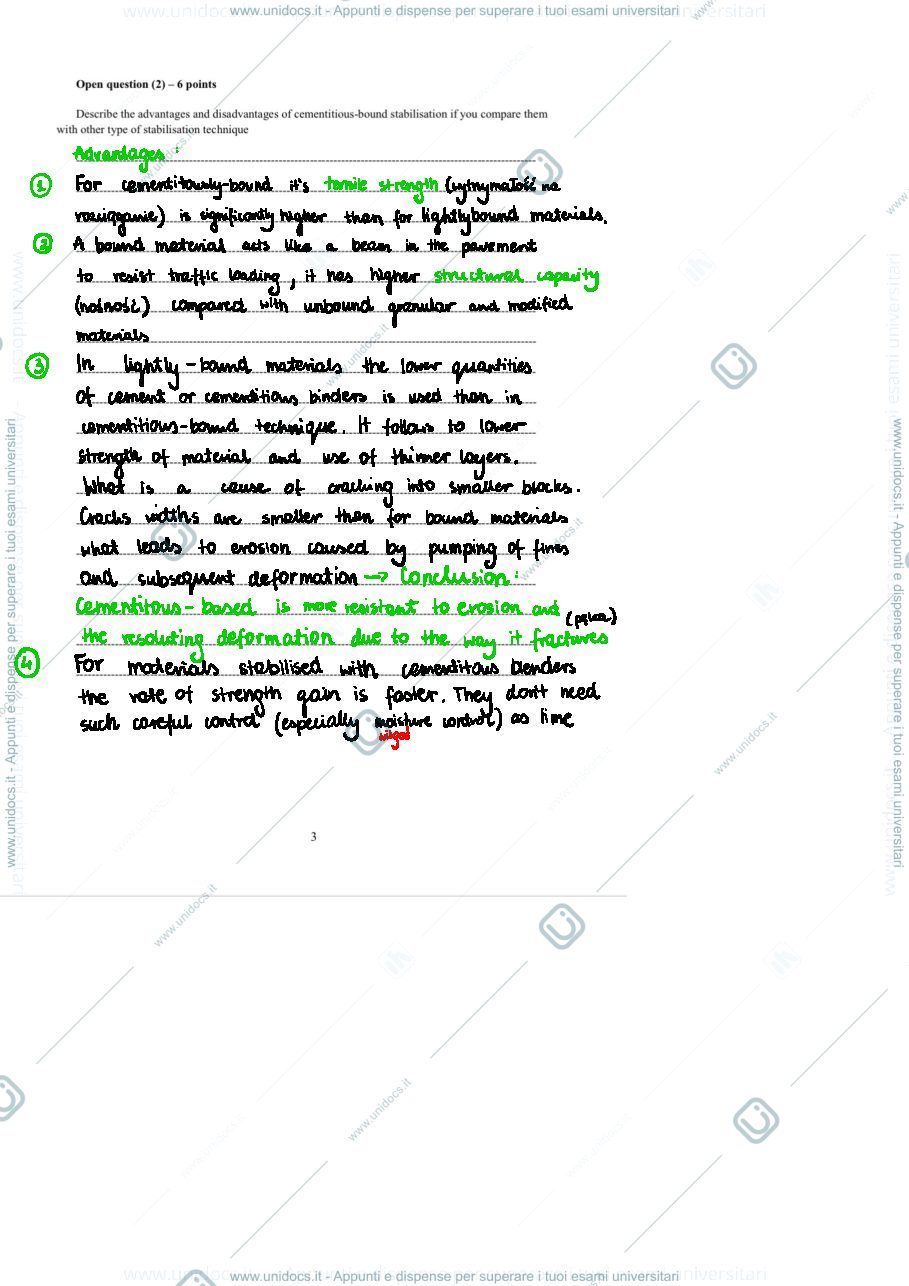 www.unidocs.it - Appunti e dispense per superare i tuoi esami universitari
Open question (2) – 6 points
Describe the advantages and disadvantages of cementitious-bound stabilisation if you compare them
with other type of stabilisation technique
Advantages :
1 For cementitously-bound it's tensile strength (wytrzymałość na
rozciąganie) is significantly higher then for lightlybound materials.
2 A bound material acts like a beam in the pavement
to resist traffic loading, it has higher structural capacity
(nośność) compared with unbound granular and modified
materials
3 In lightly-bound materials the lower quantities
of cement or cementitious binders is used than in
cementitious-bound technique. It follows to lower
strength of material and use of thinner layers.
What is a cause of cracking into smaller blocks.
Cracks widths are smaller then for bound materials
what leads to erosion caused by pumping of fines
and subsequent deformation → Conclusion:
Cementitous-based is more resistant to erosion and
(pęka)
the resoluting deformation due to the way it fractures
4 For materials stabilised with cementitous benders
the rate of strength gain is faster. They don't need
such careful control (especially moisture control) as lime
wilgoć
3
www.unidocs.it
www.unidocs.it - Appunti e dispense per superare i tuoi esami universitari
www.unidocs.it - Appunti e dispense per superare i tuoi esami universitari
www.unidocs.it - Appunti e dispense per superare i tuoi esami universitari